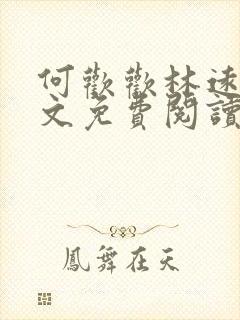 何歡歡林遠
文免費閱讀
鳳舞在天